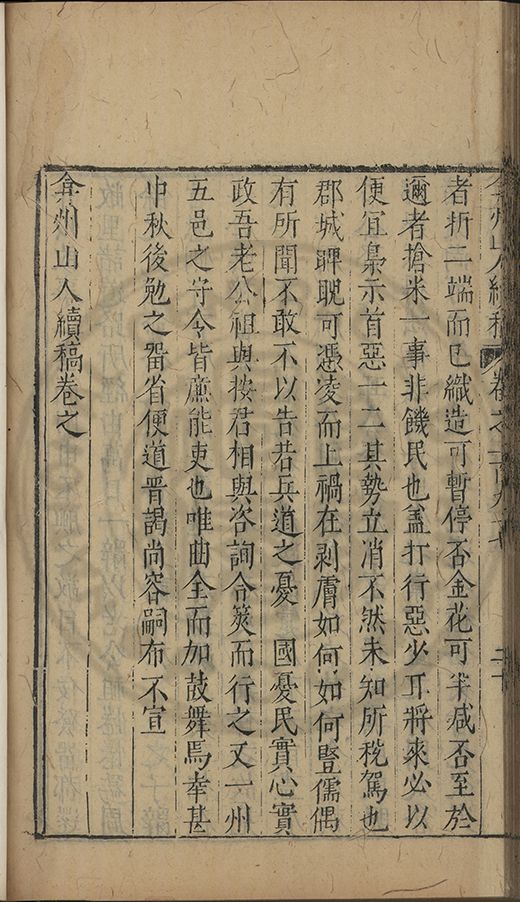 者折二端而已織造可暫停否金花可半减否至於
邇者搶米一事非饑民也盖打行惡少耳將來必以
便宜梟示首惡一二其勢立消不然未知所稅駕也
郡城睥睨可憑凌而上禍在剥膚如何如何豎儒偶
有所聞不敢不以告若兵道之憂 國憂民實心實
政吾老公祖與按君相與咨詢合筴而行之又一州
五邑之守令皆廉能吏也唯曲全而加鼓舞焉幸甚
中秋後勉之留省便道晋謁尚容嗣布不宣
弇州山人續稿卷之
弇州山人續稿 卷之一百九十 二十